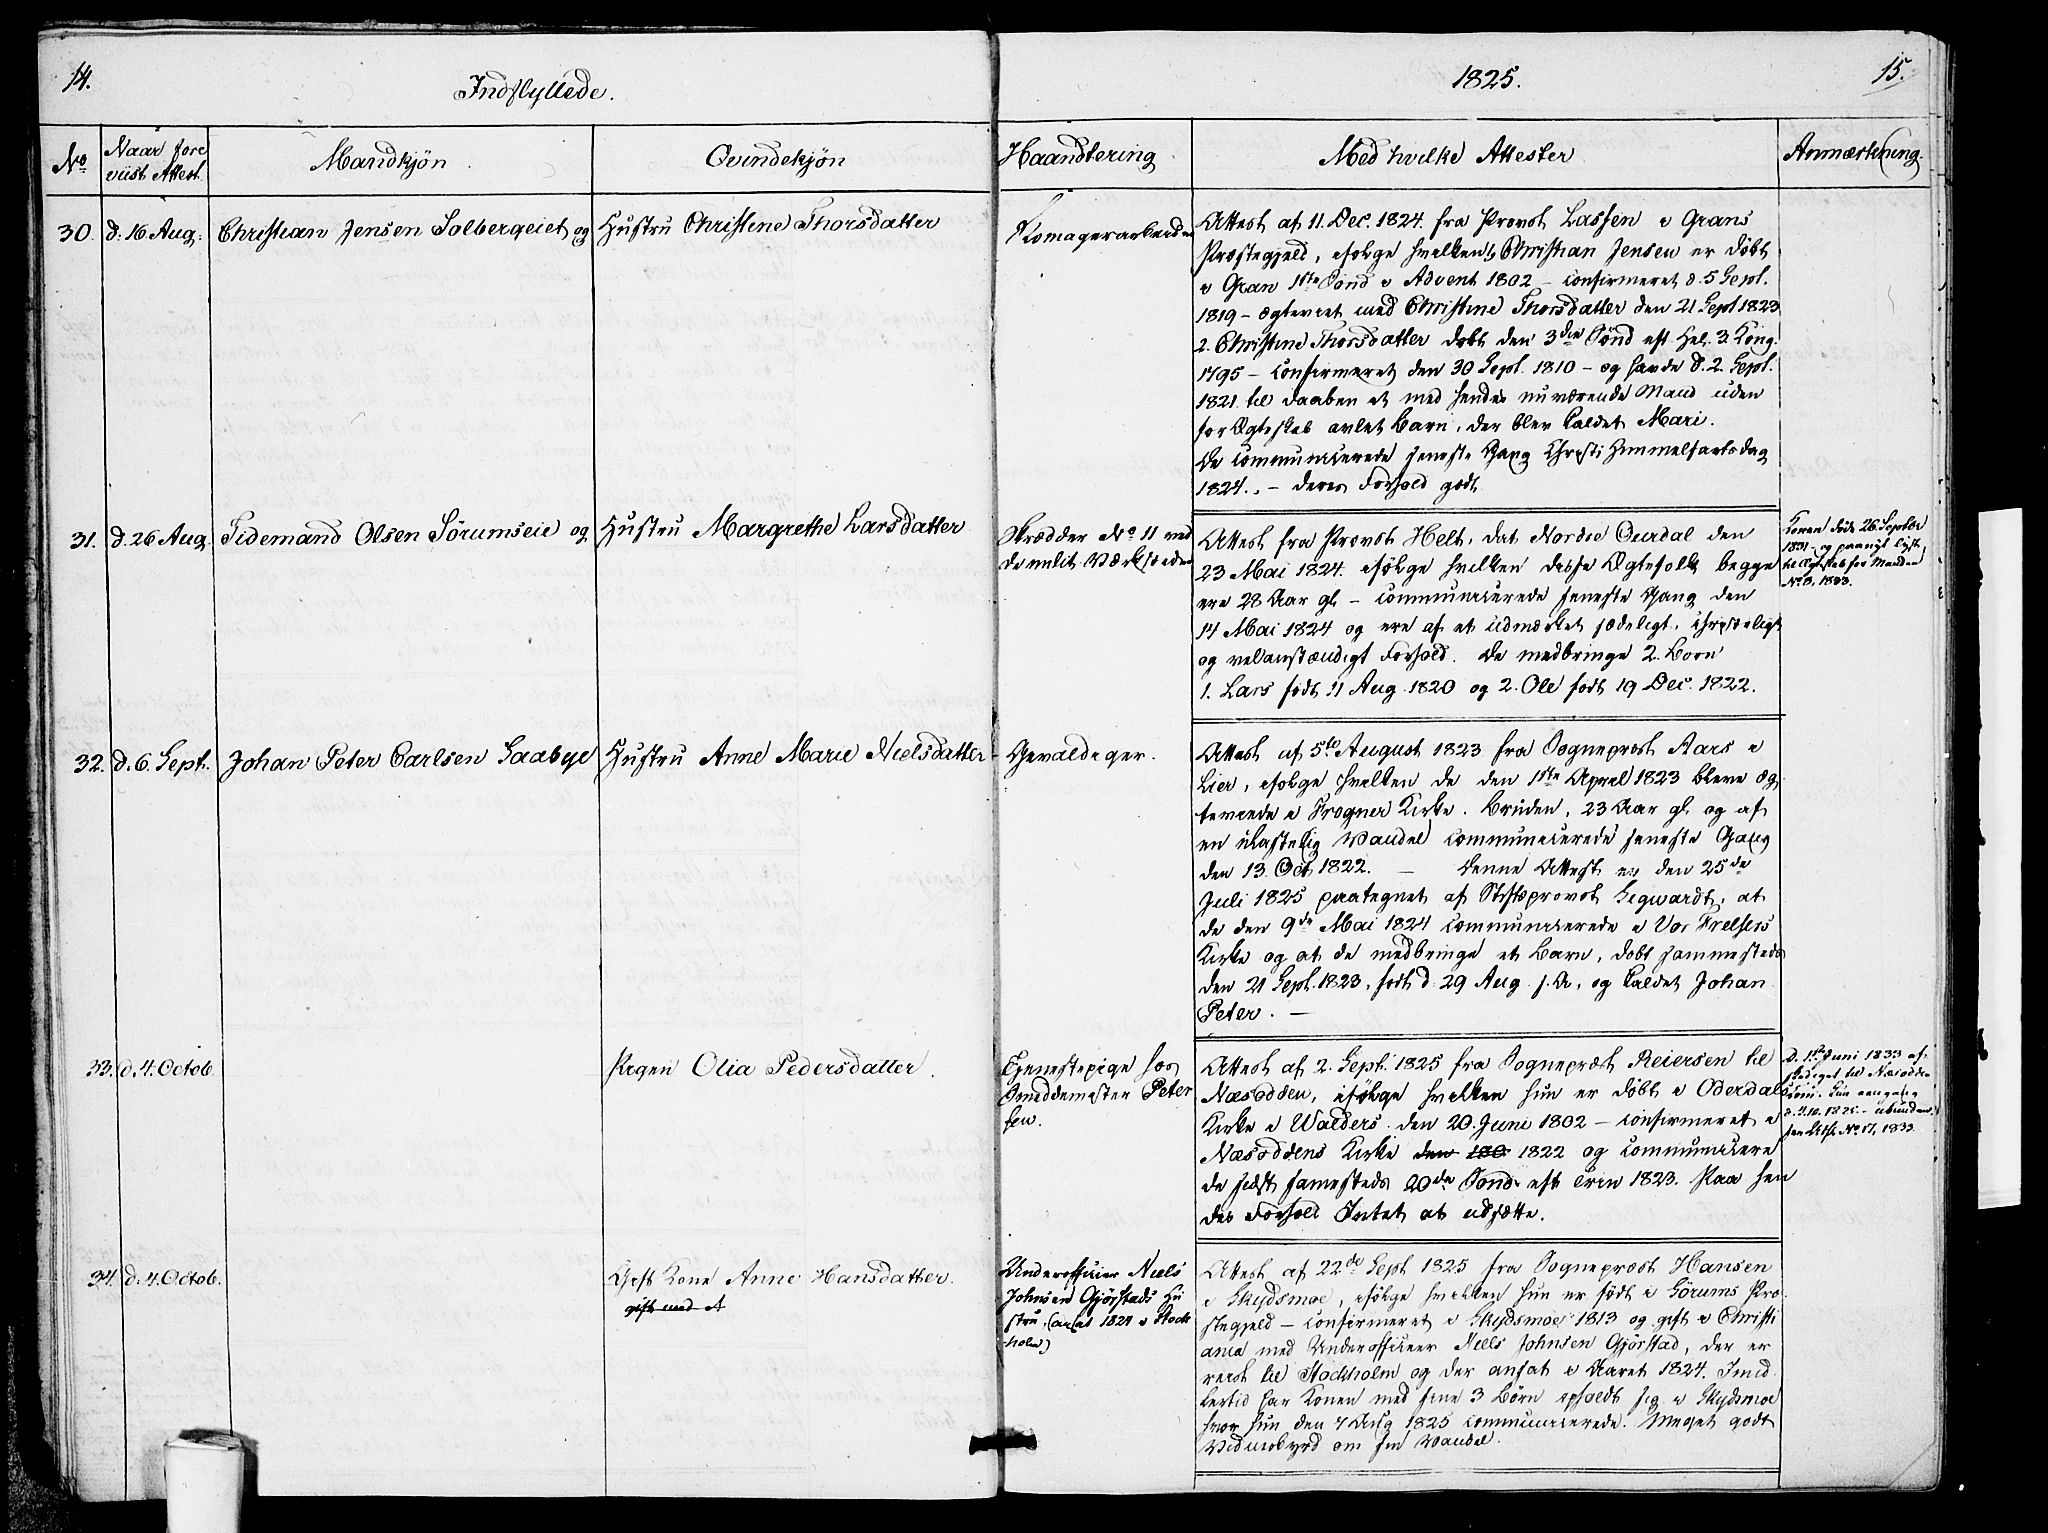 14.
Indflyttede.
1825.
15.
No
Naar fore
viist Attest.
Mandkjøn
Qvindekjøn
Haandtering
Med hvilke Attester
Anmærkning.
30.
d. 16 Aug.
Christian Jensen Solbergeiet og
Hustru Christine Thorsdatter
Attest af 11. Dec. 1824. fra Provst Lassen i Grans
Præstegjeld, ifølge hvilken 1, Christian Jensen er døbt
i Gran 1ste Sønd i Advent 1802 – confirmeret d. 5 Sept.
1819 – ægteviet med Christine Thorsdatter den 21 Sept 1823
2. Christine Thorsdatter døbt den 3die Sønd eft Hel. 3. Kong.
1795 – confirmeret den 30 Sept. 1810 – og havde d. 2. Sept.
1821 til Daaben et med hendes nuværende Mand uden
for Ægteskab avlet Barn, der blev kaldet Mari.
De communicerede seneste Gang Christi Himmelfartsdag
1824. – Deres Forhold godt
31.
d. 26 Aug
Tidemand Olsen Sørumseie og
Hustru Margrethe Larsdatter
Skrædder No 11 ved
Attest fra Provst Helt, dat Nordre Ourdal den
23 Mai 1824. ifølge hvilken disse Ægtefolk begge
ere 28 Aar gl – communicerede seneste Gang den
14 Mai 1824 og ere af et udmærket sædeligt, christeligt
og velanstændigt Forhold. De medbringe 2. Børn
1. Lars født 11 Aug. 1820 og 2. Ole født 19 Dec. 1822.
Konen døde 26. Septbr
1831 og paanyt lyst
til Ægteskab for Manden
No 3, 1833.
32.
d. 6. Sept.
Johan Peter Carlsen Saabye
Hustru Anne Marie Nielsdatter
Gevaldiger.
Attest af 5te August 1823 fra Sognepræst Aars i
Lier, ifølge hvilken de den 1ste April 1823 bleve æg
teviede i Frogner Kirke. Bruden, 23 Aar gl. og af
en ulastelig Vandel communicerede seneste Gang
den 13. Oct 1822. – Denne Attest er den 25de
Juli 1825 paategnet af Stiftsprovst Segwardt, at
de den 9de Mai 1824 communicerede i Vor Frelsers
Kirke og at de medbringe et Barn, døbt sammesteds
den 21 Sept. 1823, født d. 29 Aug. s. A, og kaldet Johan
Peter. –
33.
d. 4. Octob.
Pigen Olia Pedersdatter.
Tjenestepige hos
Smeddemester Peter
sen.
Attest af 2. Sept. 1825 fra Sognepræst Reiersen til
Næsodden, ifølge hvilken hun er døbt i Oderdals
Kirke i Walders. den 20. Juni 1802 – confirmeret i
Næsoddens Kirke den 180 1822 og communicere
de sidst samesteds 20de Sønd eft Trin 1823. Paa hen
des Forhold Intet at udsætte.
D. 1ste Juni 1833 af
til Næsodden
No. 17, 1833.
34.
d. 4. Octob.
Gift Kone Anne Hansdatter.
gift med A
Underofficier Niels
Johnsen Gjørstads Hu
stru. (ansat 1824 i Stock
holm)
Attest af 22de Sept 1825 fra Sognepræst Hansen
i Skydsmoe, ifølge hvilken hun er født i Sørums Præ
stegjeld – confirmeret i Skydsmoe 1813 og gift i Christi
ania med Underofficeer Niels Johnsen Gjørstad, der er
reist til Stockholm og der ansat i Aaret 1824. Imid
lertid har Konen med sine 3 Børn opholdt sig i Skydsmoe
hvor hun den 7 Aug 1825 communicerede. Meget godt
Vidnesbyrd om sin Vandel.